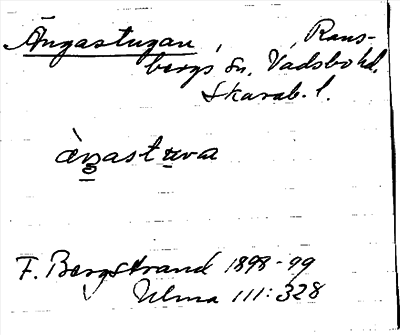 Ängastugan, Rans-
bergs sn. Vadsbo hd.
Skarab. l.
àŋastuva
F. Bergstrand 1898-99
Ulma 111:328